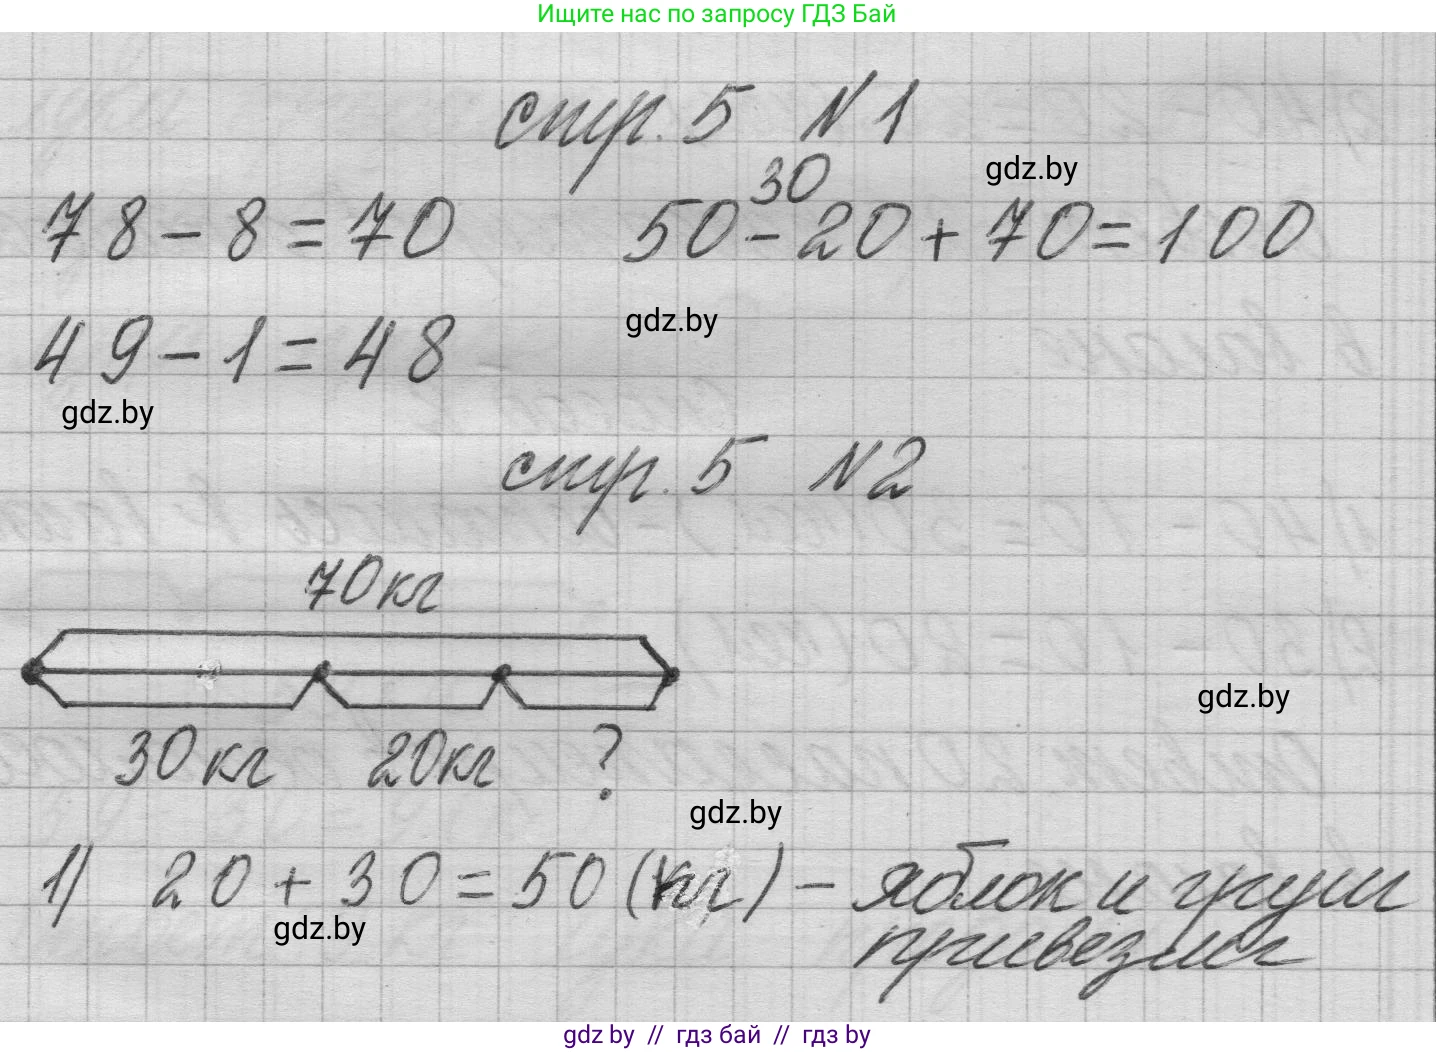 Ищите нас по запросу ГДЗ Бай
стр. 5 N 1
gdz.by
30
78 - 8 = 70 50 - 20 + 70 = 100
gdz.by
49 - 1 = 48
gdz.by
стр. 5 N 2
70 кг
gdz.by
30 кг 20 кг ?
gdz.by
1) 20 + 30 = 50 (кг) - яблок и груш
gdz.by
привезли
gdz.by // гдз бай // гдз by